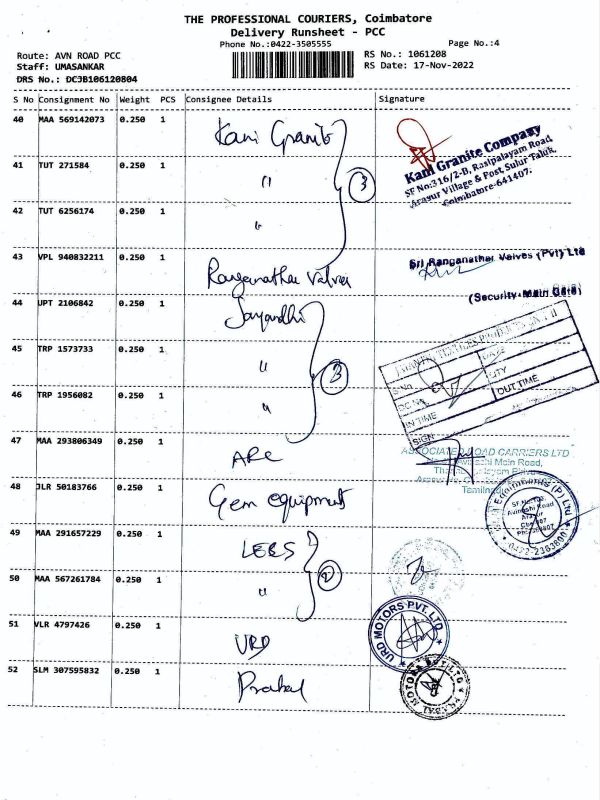 THE PROFESSIONAL COURIERS, Coimbatore
Delivery Runsheet - PCC
Phone No.:0422-3505555
Page No.:4
Route: AVN ROAD PCC
RS No.: 1061208
Staff: UMASANKAR
RS Date: 17-Nov-2022
DRS No.: DCJB106120804
S No Consignment No Weight PCS Consignee Details Signature
40 MAA 569142073 0.250 1 Kani Granite
Kani Granite Company
SF No:316/2-B, Rasipalayam Road,
Arasur Village & Post, Sulur Taluk,
Coimbatore-641407.
41 TUT 271584 0.250 1 "
3
42 TUT 6256174 0.250 1 "
43 VPL 940832211 0.250 1 Ranganathar Valves
Sri Ranganathar Valves (Pvt) Ltd
(Security-Main Gate)
44 UPT 2106842 0.250 1 Jayandhi
45 TRP 1573733 0.250 1 "
3
46 TRP 1956082 0.250 1 "
S.No
DATE
DC No
QTY
IN TIME
OUT TIME
SIGN
47 MAA 293806349 0.250 1 ARC
ASSOCIATED ROAD CARRIERS LTD
Main Road,
Tamilnadu
48 JLR 50183766 0.250 1 Gem equipments
SF No:
Avinashi Road
Arasur
0422-2363800
49 MAA 291657229 0.250 1 LEBS
50 MAA 567261784 0.250 1 "
2
51 VLR 4797426 0.250 1 URD
URD MOTORS PVT. LTD
52 SLM 307595832 0.250 1 Prabal
PRABAL MOTORS PVT LTD